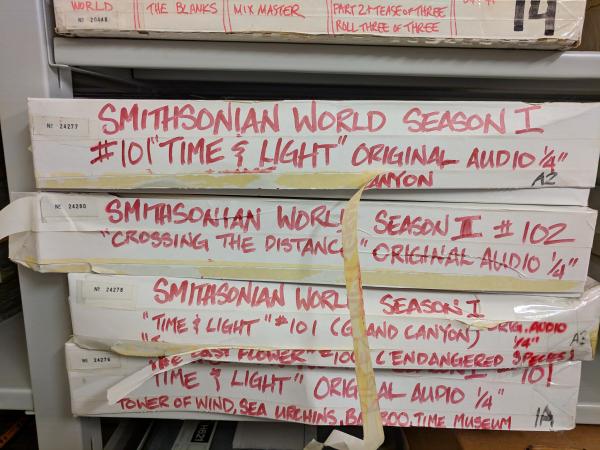 WORLD
THE BLANKS
MIX MASTER
PART 2 + TEASE OF THREE
ROLL THREE OF THREE
14
Nº 24277
SMITHSONIAN WORLD SEASON I
#101 "TIME & LIGHT" ORIGINAL AUDIO 1/4"
CANYON
A2
Nº 24280
SMITHSONIAN WORLD SEASON II #102
"CROSSING THE DISTANCE" ORIGINAL AUDIO 1/4"
Nº 24278
SMITHSONIAN WORLD SEASON I
"TIME & LIGHT" #101 (GRAND CANYON) ORIG. AUDIO
1/4"
THE LAST FLOWER" (ENDANGERED SPECIES)
Nº 24276
101
TIME & LIGHT" ORIGINAL AUDIO 1/4"
TOWER OF WIND, SEA URCHINS, BAMBOO, TIME MUSEUM
1A